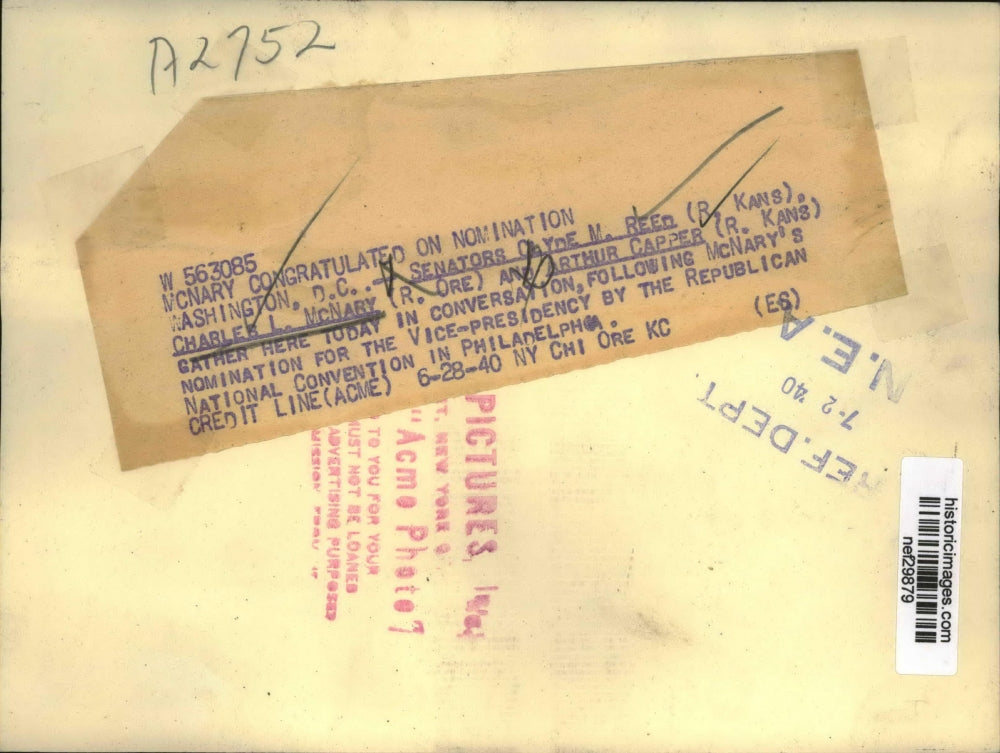 A2752
W 563085
MCNARY CONGRATULATED ON NOMINATION
WASHINGTON, D.C.--SENATORS CLYDE M. REED (R. KANS),
CHARLES L. MCNARY (R. ORE) AND ARTHUR CAPPER (R. KANS)
GATHER HERE TODAY IN CONVERSATION, FOLLOWING MCNARY'S
NOMINATION FOR THE VICE-PRESIDENCY BY THE REPUBLICAN
NATIONAL CONVENTION IN PHILADELPHIA.
CREDIT LINE(ACME) 6-28-40 NY CHI ORE KC (ES)
N.E.A
7-2 '40
REF. DEPT.
PICTURES,
NEW YORK
"Acme Photo"
TO YOU FOR YOUR
MUST NOT BE LOANED
ADVERTISING PURPOSES
historicimages.com
nef29879